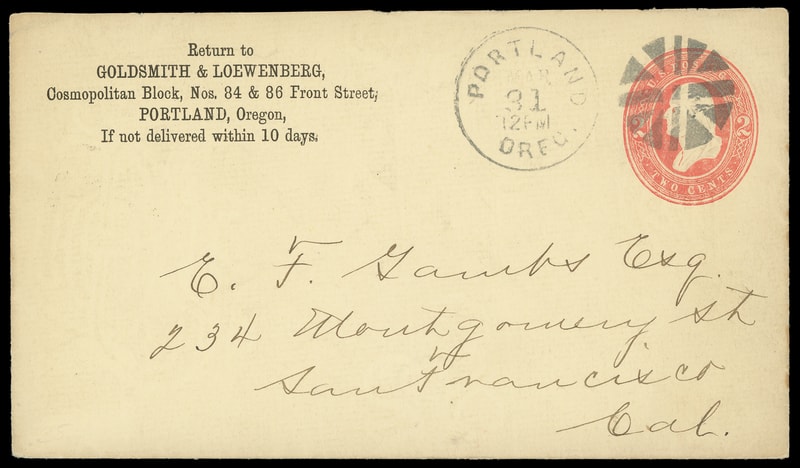 Return to
GOLDSMITH & LOEWENBERG,
Cosmopolitan Block, Nos. 34 & 36 Front Street,
PORTLAND, Oregon,
If not delivered within 10 days.
PORTLAND
MAR
31
12PM
OREG.
U.S. POSTAGE
2 2
TWO CENTS
E. F. Gambs Esq.
234 Montgomery St
San Francisco
Cal.